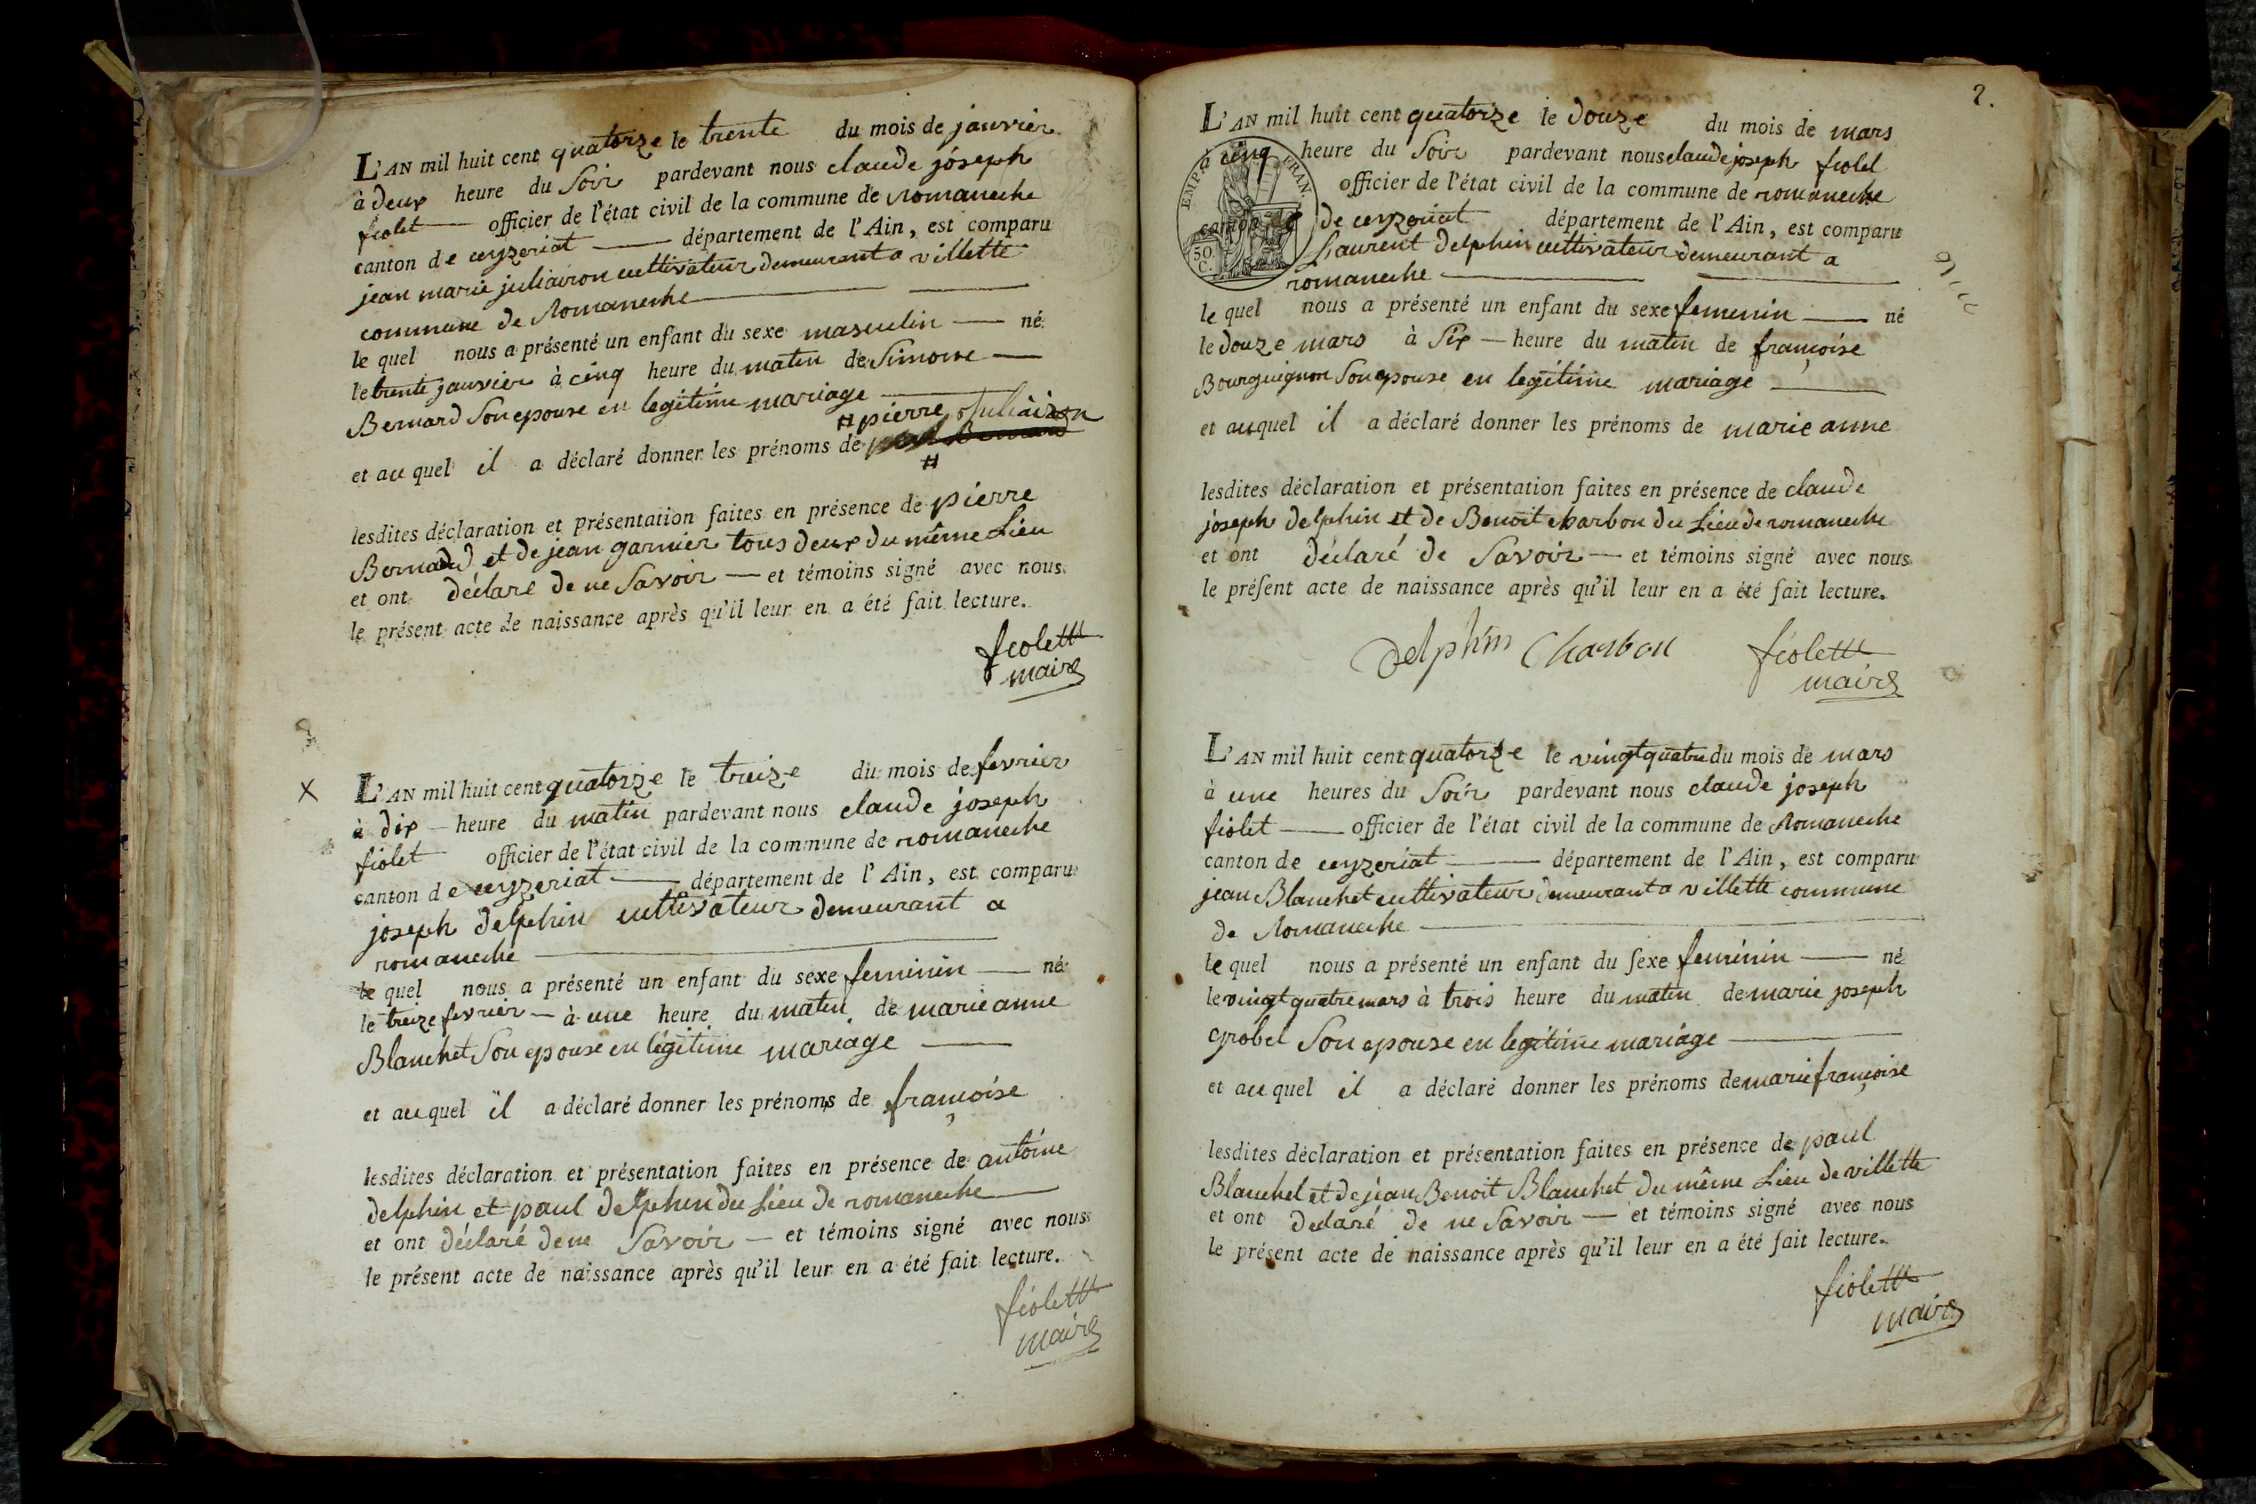 L'AN mil huit cent quatorze le trente du mois de janvier
à deux heure du Soir pardevant nous claude joseph
fiolet officier de l'état civil de la commune de Romaneche
canton de ceyzeriat département de l'Ain, est comparu
jean marie juliairon cultivateur demeurant a villette
commune de Romaneche
le quel nous a présenté un enfant du sexe masculin né
le trente janvier à cinq heure du matin de Simone
Bernard Son epouse en legitime mariage
# pierre juliairon
et au quel il a déclaré donner les prénoms de
#
lesdites déclaration et présentation faites en présence de pierre
Bernard et de jean garnier tous deux du même Lieu
et ont déclaré de ne Savoir et témoins signé avec nous
le présent acte de naissance après qu'il leur en a été fait lecture.
fiolett
maire
X
L'AN mil huit cent quatorze le treize du mois de fevrier
à dix heure du matin pardevant nous claude joseph
fiolet officier de l'état civil de la commune de romaneche
canton de ceyzeriat département de l'Ain, est comparu
joseph delphin cultivateur demeurant a
romaneche
le quel nous a présenté un enfant du sexe feminin né
le treize fevrier à une heure du matin de marie anne
Blanchet Son epouse en légitime mariage
et au quel il a déclaré donner les prénoms de françoise
lesdites déclaration et présentation faites en présence de antoine
delphin et paul delphin du Lieu de romaneche
et ont déclaré de ne Savoir et témoins signé avec nous
le présent acte de naissance après qu'il leur en a été fait lecture.
fiolett
maire
2.
L'AN mil huit cent quatorze le douze du mois de mars
à cinq heure du Soir pardevant nous claude joseph fiolet
officier de l'état civil de la commune de romaneche
canton de ceyzeriat département de l'Ain, est comparu
EMP. FRAN.
50
C.
Laurent delphin cultivateur demeurant a
romaneche
le quel nous a présenté un enfant du sexe femenin né
le douze mars à Six heure du matin de françoise
Bourguignon Son epouse en legitime mariage
et au quel il a déclaré donner les prénoms de marie anne
lesdites déclaration et présentation faites en présence de claude
joseph delphin et de Benoit charbon du Lieu de romaneche
et ont déclaré de Savoir et témoins signé avec nous
le présent acte de naissance après qu'il leur en a été fait lecture.
Delphin Charbon fiolett
maire
L'AN mil huit cent quatorze le vingt quatre du mois de mars
à une heures du Soir pardevant nous claude joseph
fiolet officier de l'état civil de la commune de Romaneche
canton de ceyzeriat département de l'Ain, est comparu
jean Blanchet cultivateur demeurant a villette commune
de Romaneche
le quel nous a présenté un enfant du sexe feminin né
le vingt quatre mars à trois heure du matin de marie joseph
grobel Son epouse en legitime mariage
et au quel il a déclaré donner les prénoms de marie françoise
lesdites déclaration et présentation faites en présence de paul
Blanchet et de jean Benoit Blanchet du même Lieu de villette
et ont declaré de ne Savoir et témoins signé avec nous
le présent acte de naissance après qu'il leur en a été fait lecture.
fiolett
maire